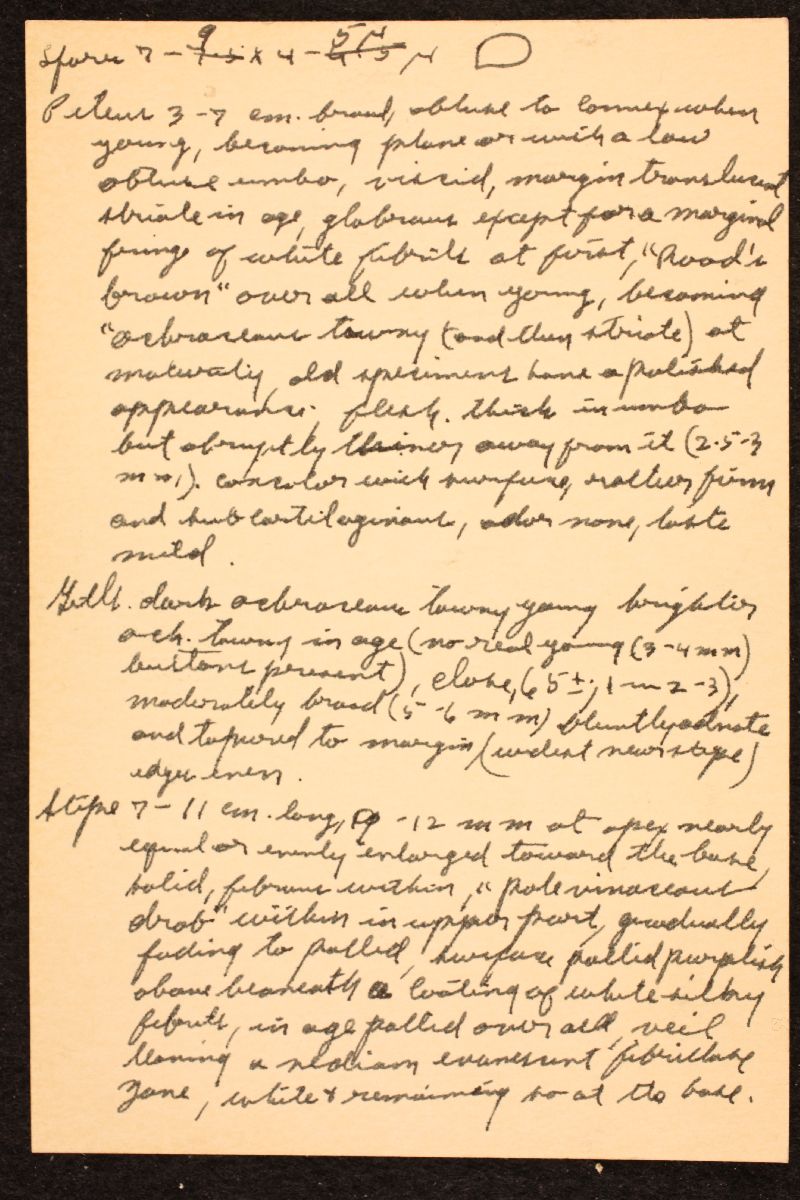 Spores 7 - 9 x 4 - 5 μ
Pileus 3-7 cm. broad, obtuse to convex when
young, becoming plane or with a low
obtuse umbo, viscid, margin translucent
striate in age, glabrous except for a marginal
fringe of white fibrils at first, "Rood's
brown" over all when young, becoming
"ochraceous tawny (and then striate) at
maturity, old specimens have a polished
appearance; flesh. thick in umbo
but abruptly thiner away from it (2.5-3
mm). concolor with surface, rather firm
and subcartilaginous, odor none, taste
mild.
Gills. dark ochraceous tawny young brighter
och. tawny in age (no real young (3-4 mm)
buttons present), close, (65±; 1 in 2-3),
moderately broad (5-6 mm) bluntly adnate
and tapered to margin, (widest near stipe)
edges even.
Stipe 7-11 cm. long, -12 mm at apex nearly
equal or evenly enlarged toward the base,
solid, fibrous within, "pale vinaceous
drab" within in upper part, gradually
fading to pallid, surface pallid purplish
above beneath a coating of white silky
fibrils, in age pallid over all, veil
leaving a median evanescent fibrillose
zone, white & remaining so at the base.